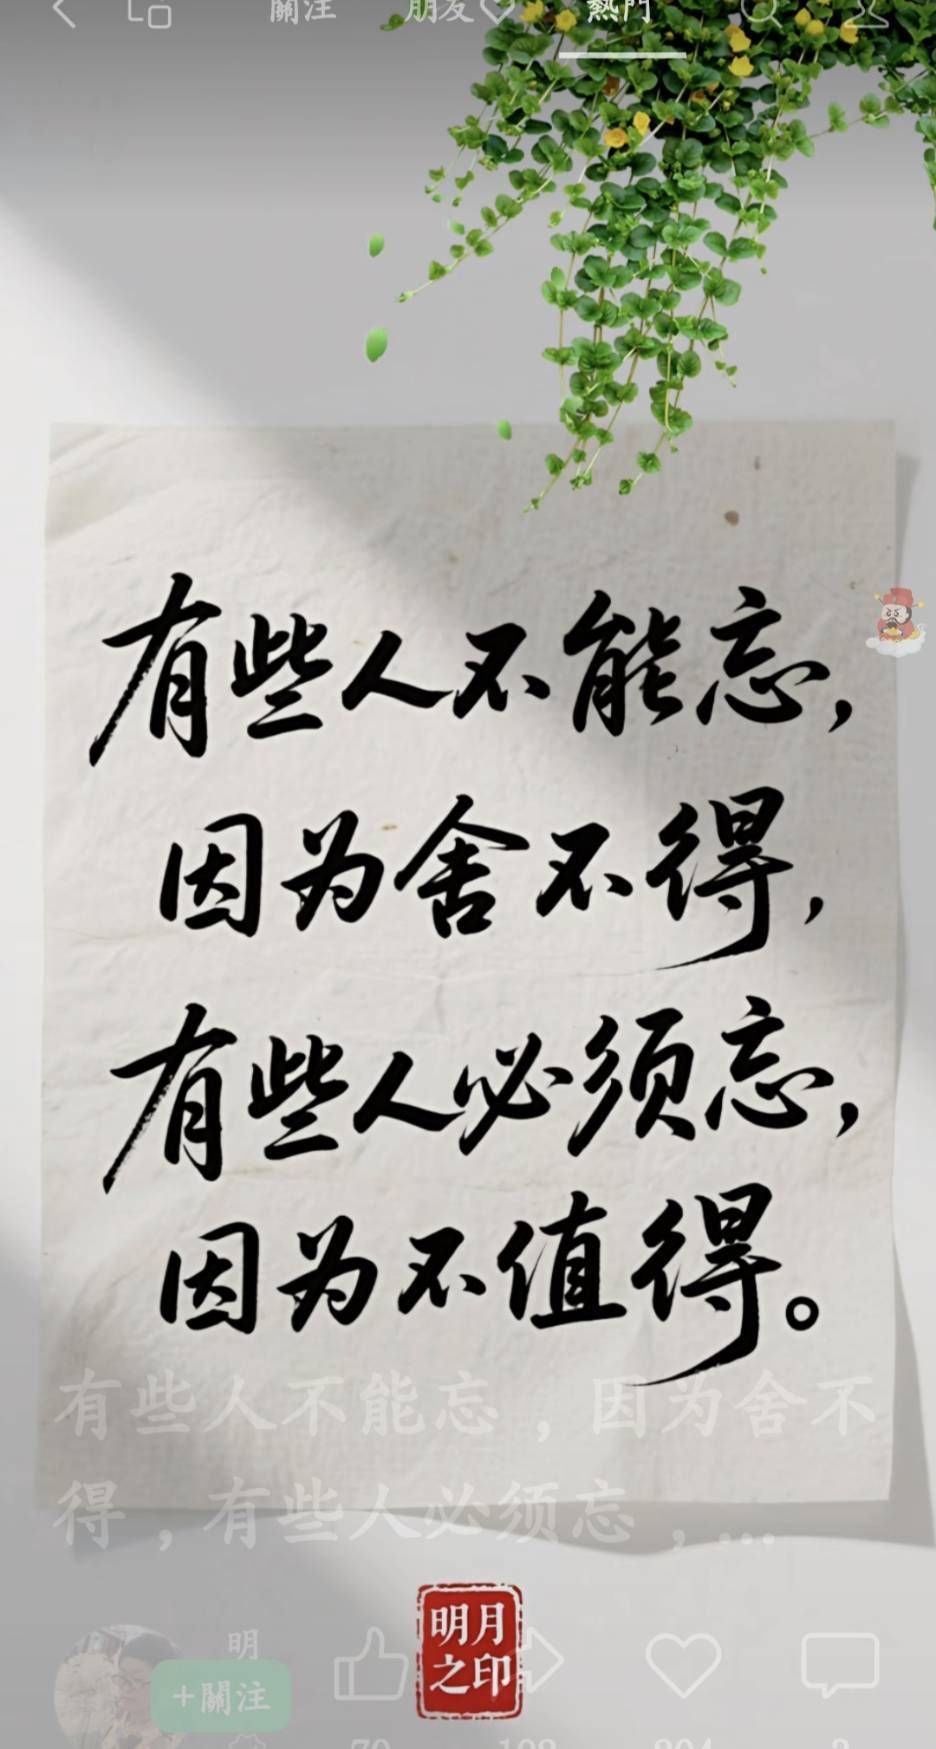 關注 朋友 熱門
有些人不能忘，
因为舍不得，
有些人必须忘，
因为不值得。
有些人不能忘，因为舍不
得，有些人必须忘，...
明
明月
之印
+關注